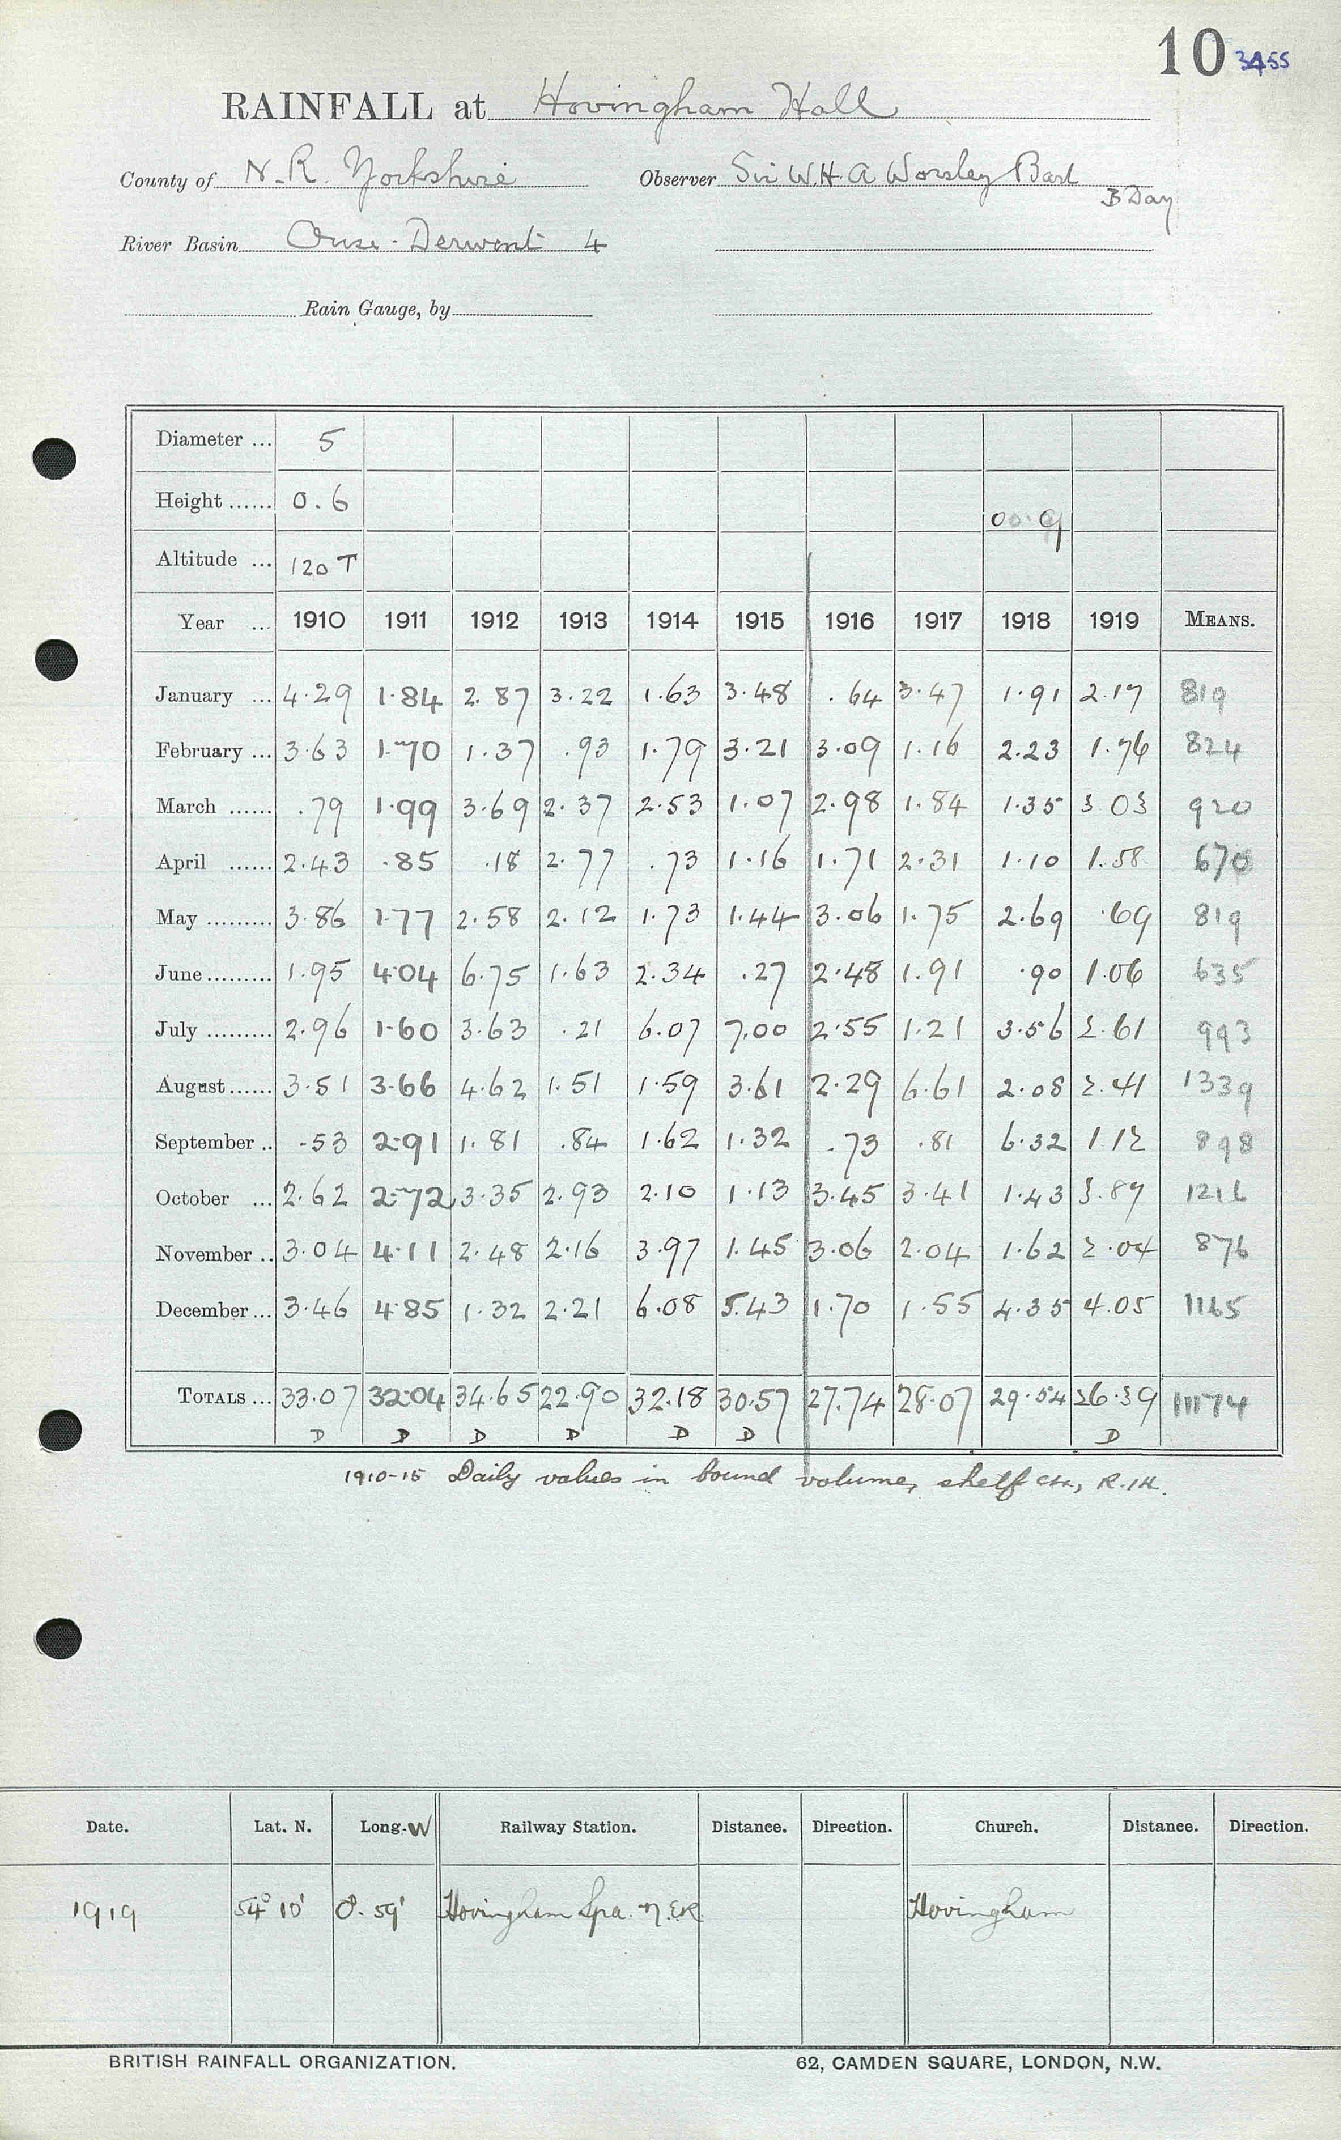 10 3455
RAINFALL at Hovingham Hall
County of N.R. Yorkshire Observer Sir W.H.A Worsley Bart
B Day
River Basin Ouse - Derwent 4
Rain Gauge, by
Diameter ... 5
Height ...... 0.6 00.9
Altitude ... 120 T
Year ... 1910 1911 1912 1913 1914 1915 1916 1917 1918 1919 MEANS.
January ... 4.29 1.84 2.87 3.22 1.63 3.48 .64 3.47 1.91 2.17 819
February ... 3.63 1.70 1.37 .93 1.79 3.21 3.09 1.16 2.23 1.76 824
March ...... .79 1.99 3.69 2.37 2.53 1.07 2.98 1.84 1.35 3.03 920
April ...... 2.43 .85 .18 2.77 .73 1.16 1.71 2.31 1.10 1.58 670
May ......... 3.86 1.77 2.58 2.12 1.73 1.44 3.06 1.75 2.69 .69 819
June ......... 1.95 4.04 6.75 1.63 2.34 .27 2.48 1.91 .90 1.06 635
July ......... 2.96 1.60 3.63 .21 6.07 7.00 2.55 1.21 3.56 2.61 993
August ...... 3.51 3.66 4.62 1.51 1.59 3.61 2.29 6.61 2.08 2.41 1339
September .. .53 2.91 1.81 .84 1.62 1.32 .73 .81 6.32 1.12 898
October ... 2.62 2.72 3.35 2.93 2.10 1.13 3.45 3.41 1.43 3.87 1216
November .. 3.04 4.11 2.48 2.16 3.97 1.45 3.06 2.04 1.62 2.04 876
December ... 3.46 4.85 1.32 2.21 6.08 5.43 1.70 1.55 4.35 4.05 1165
TOTALS ... 33.07 32.04 34.65 22.90 32.18 30.57 27.74 28.07 29.54 26.39 11174
D D D D D D D
1910-15 Daily values in bound volume, shelf R.1H.
Date. Lat. N. Long. W Railway Station. Distance. Direction. Church. Distance. Direction.
1919 54° 10' 0°. 59' Hovingham Spa. N.E.R Hovingham
BRITISH RAINFALL ORGANIZATION. 62, CAMDEN SQUARE, LONDON, N.W.